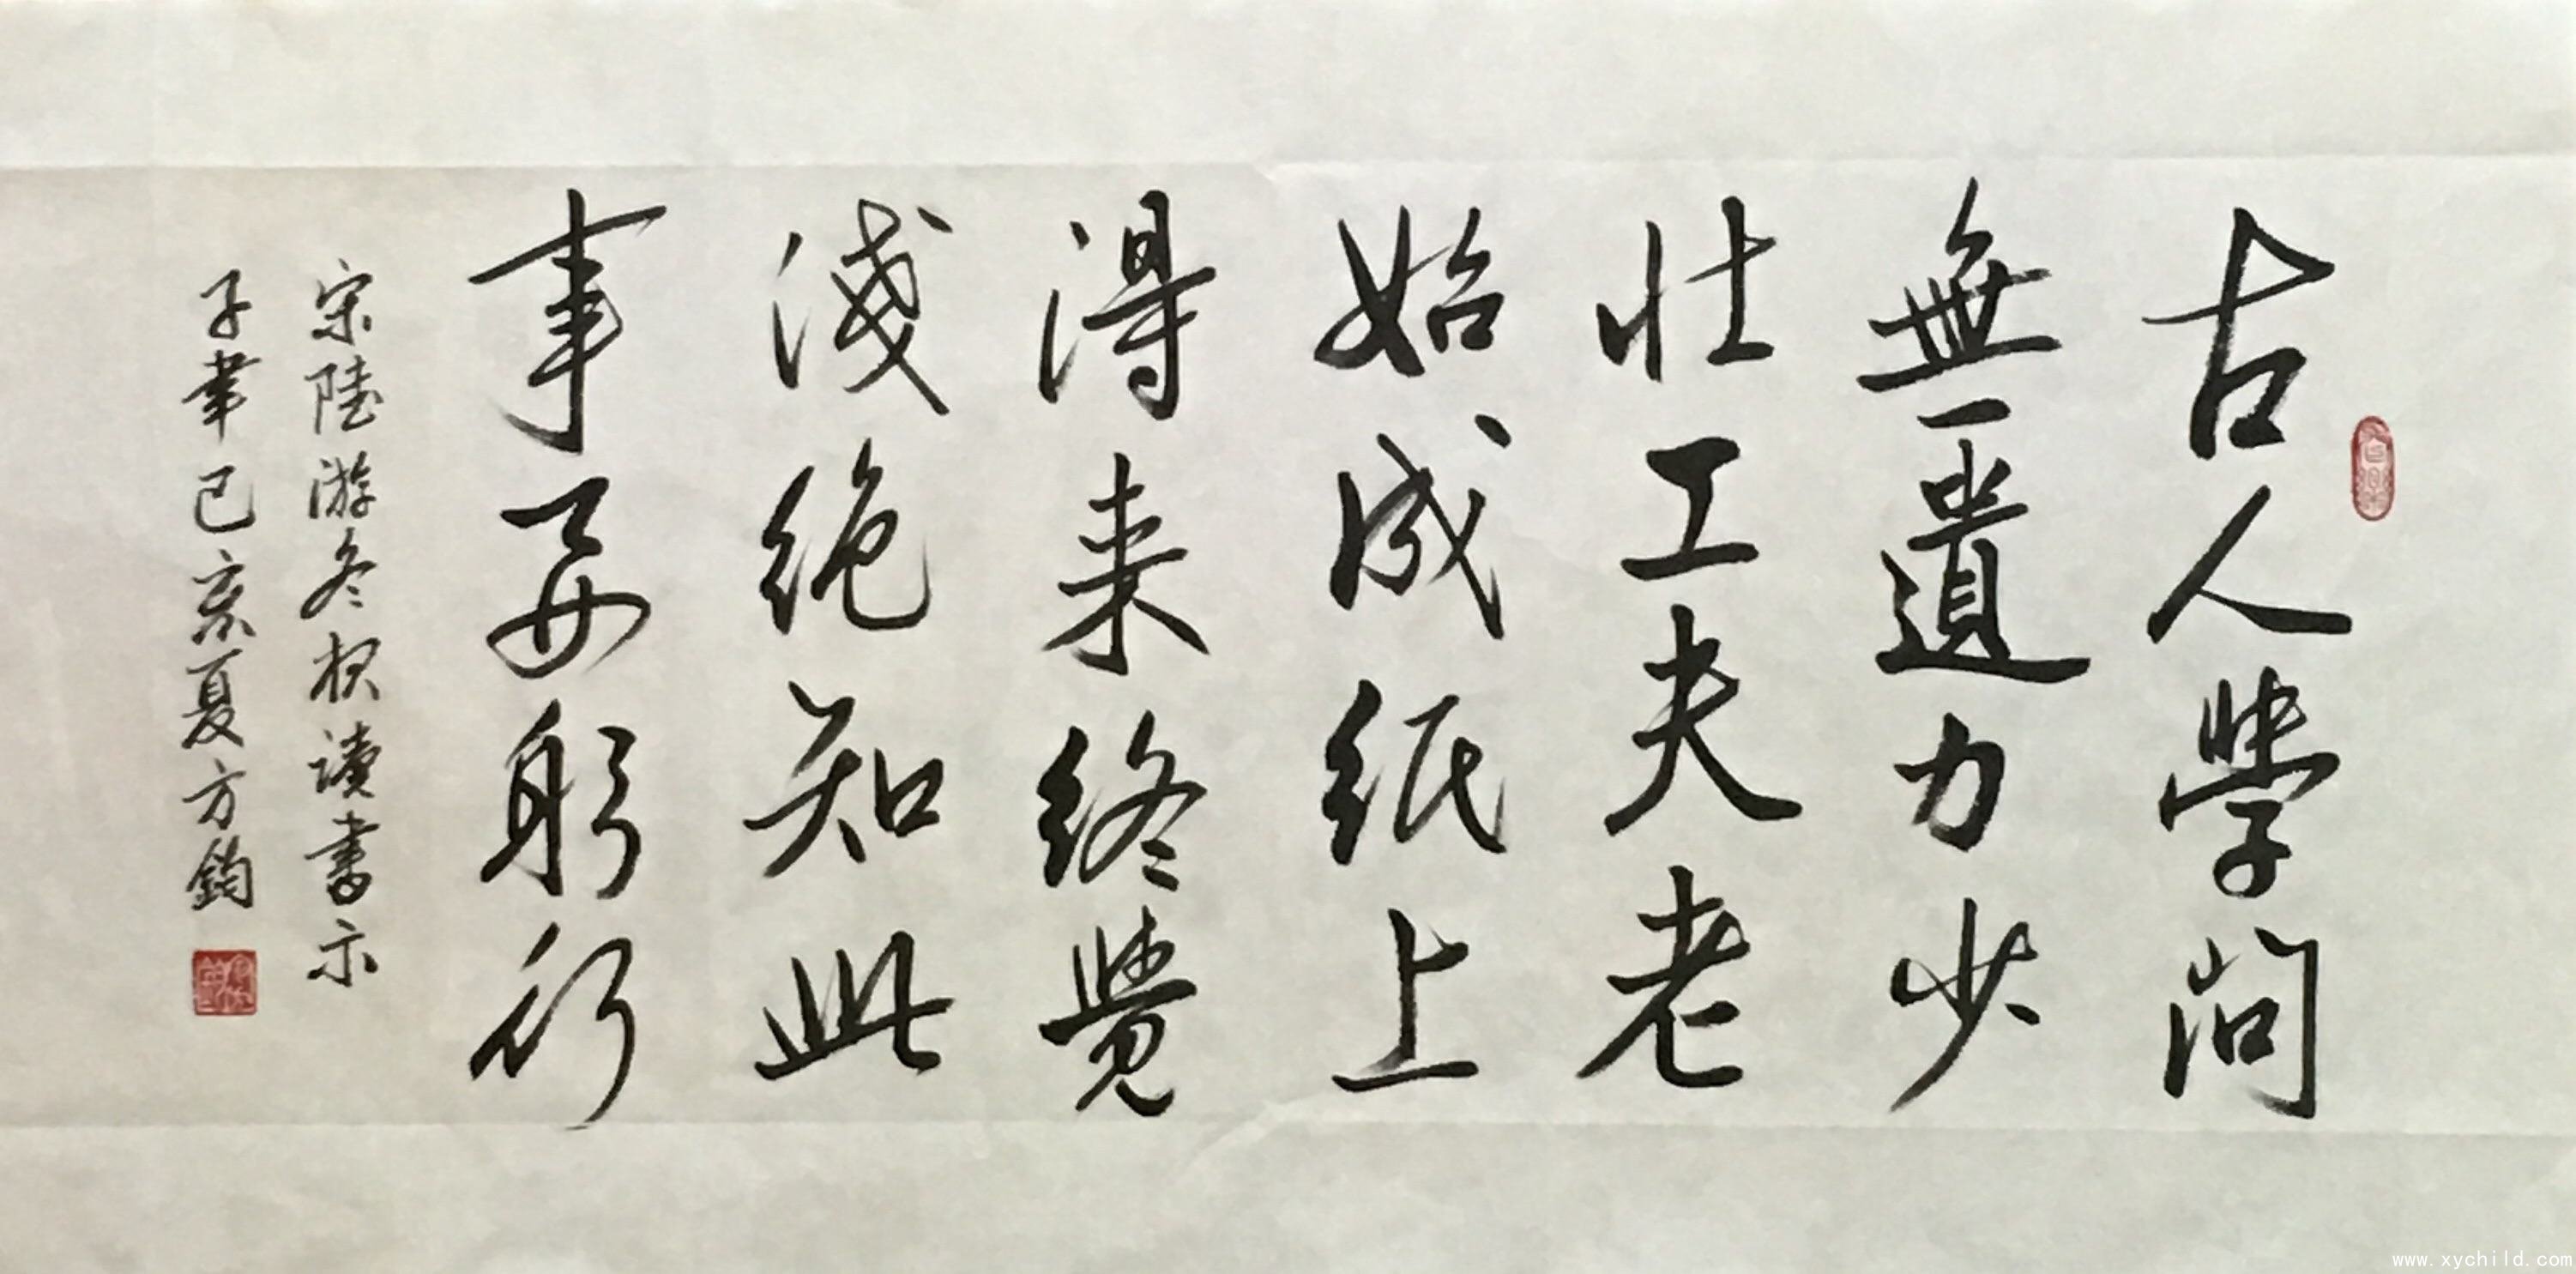 古人學問
無遺力少
壯工夫老
始成紙上
得来終覺
淺絶知此
事要躬行
宋陸游冬夜讀書示
子聿己亥夏方鈞
www.xychild.com